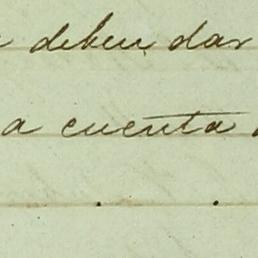 deben dar
a cuenta